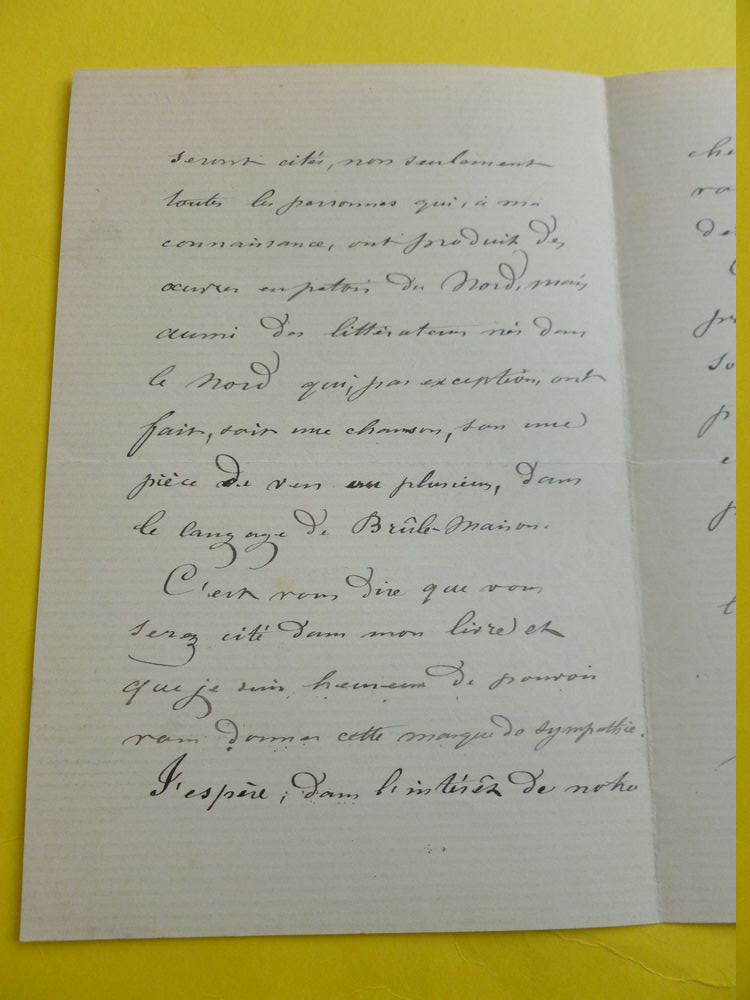 seront cités, non seulement
toutes les personnes qui, à ma
connaissance, ont produit des
œuvres en patois du Nord, mais
aussi des littérateurs nés dans
le Nord qui, par exception, ont
fait, soit une chanson, soit une
pièce de vers ou plusieurs, dans
le langage de Brûle-Maison.
C'est vous dire que vous
serez cité dans mon livre et
que je suis heureux de pouvoir
vous donner cette marque de sympathie.
J'espère, dans l'intérêt de notre